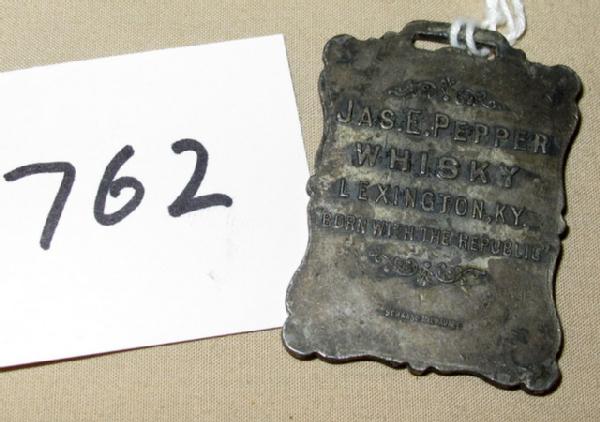 762
JAS. E. PEPPER
WHISKY
LEXINGTON, KY.
"BORN WITH THE REPUBLIC"